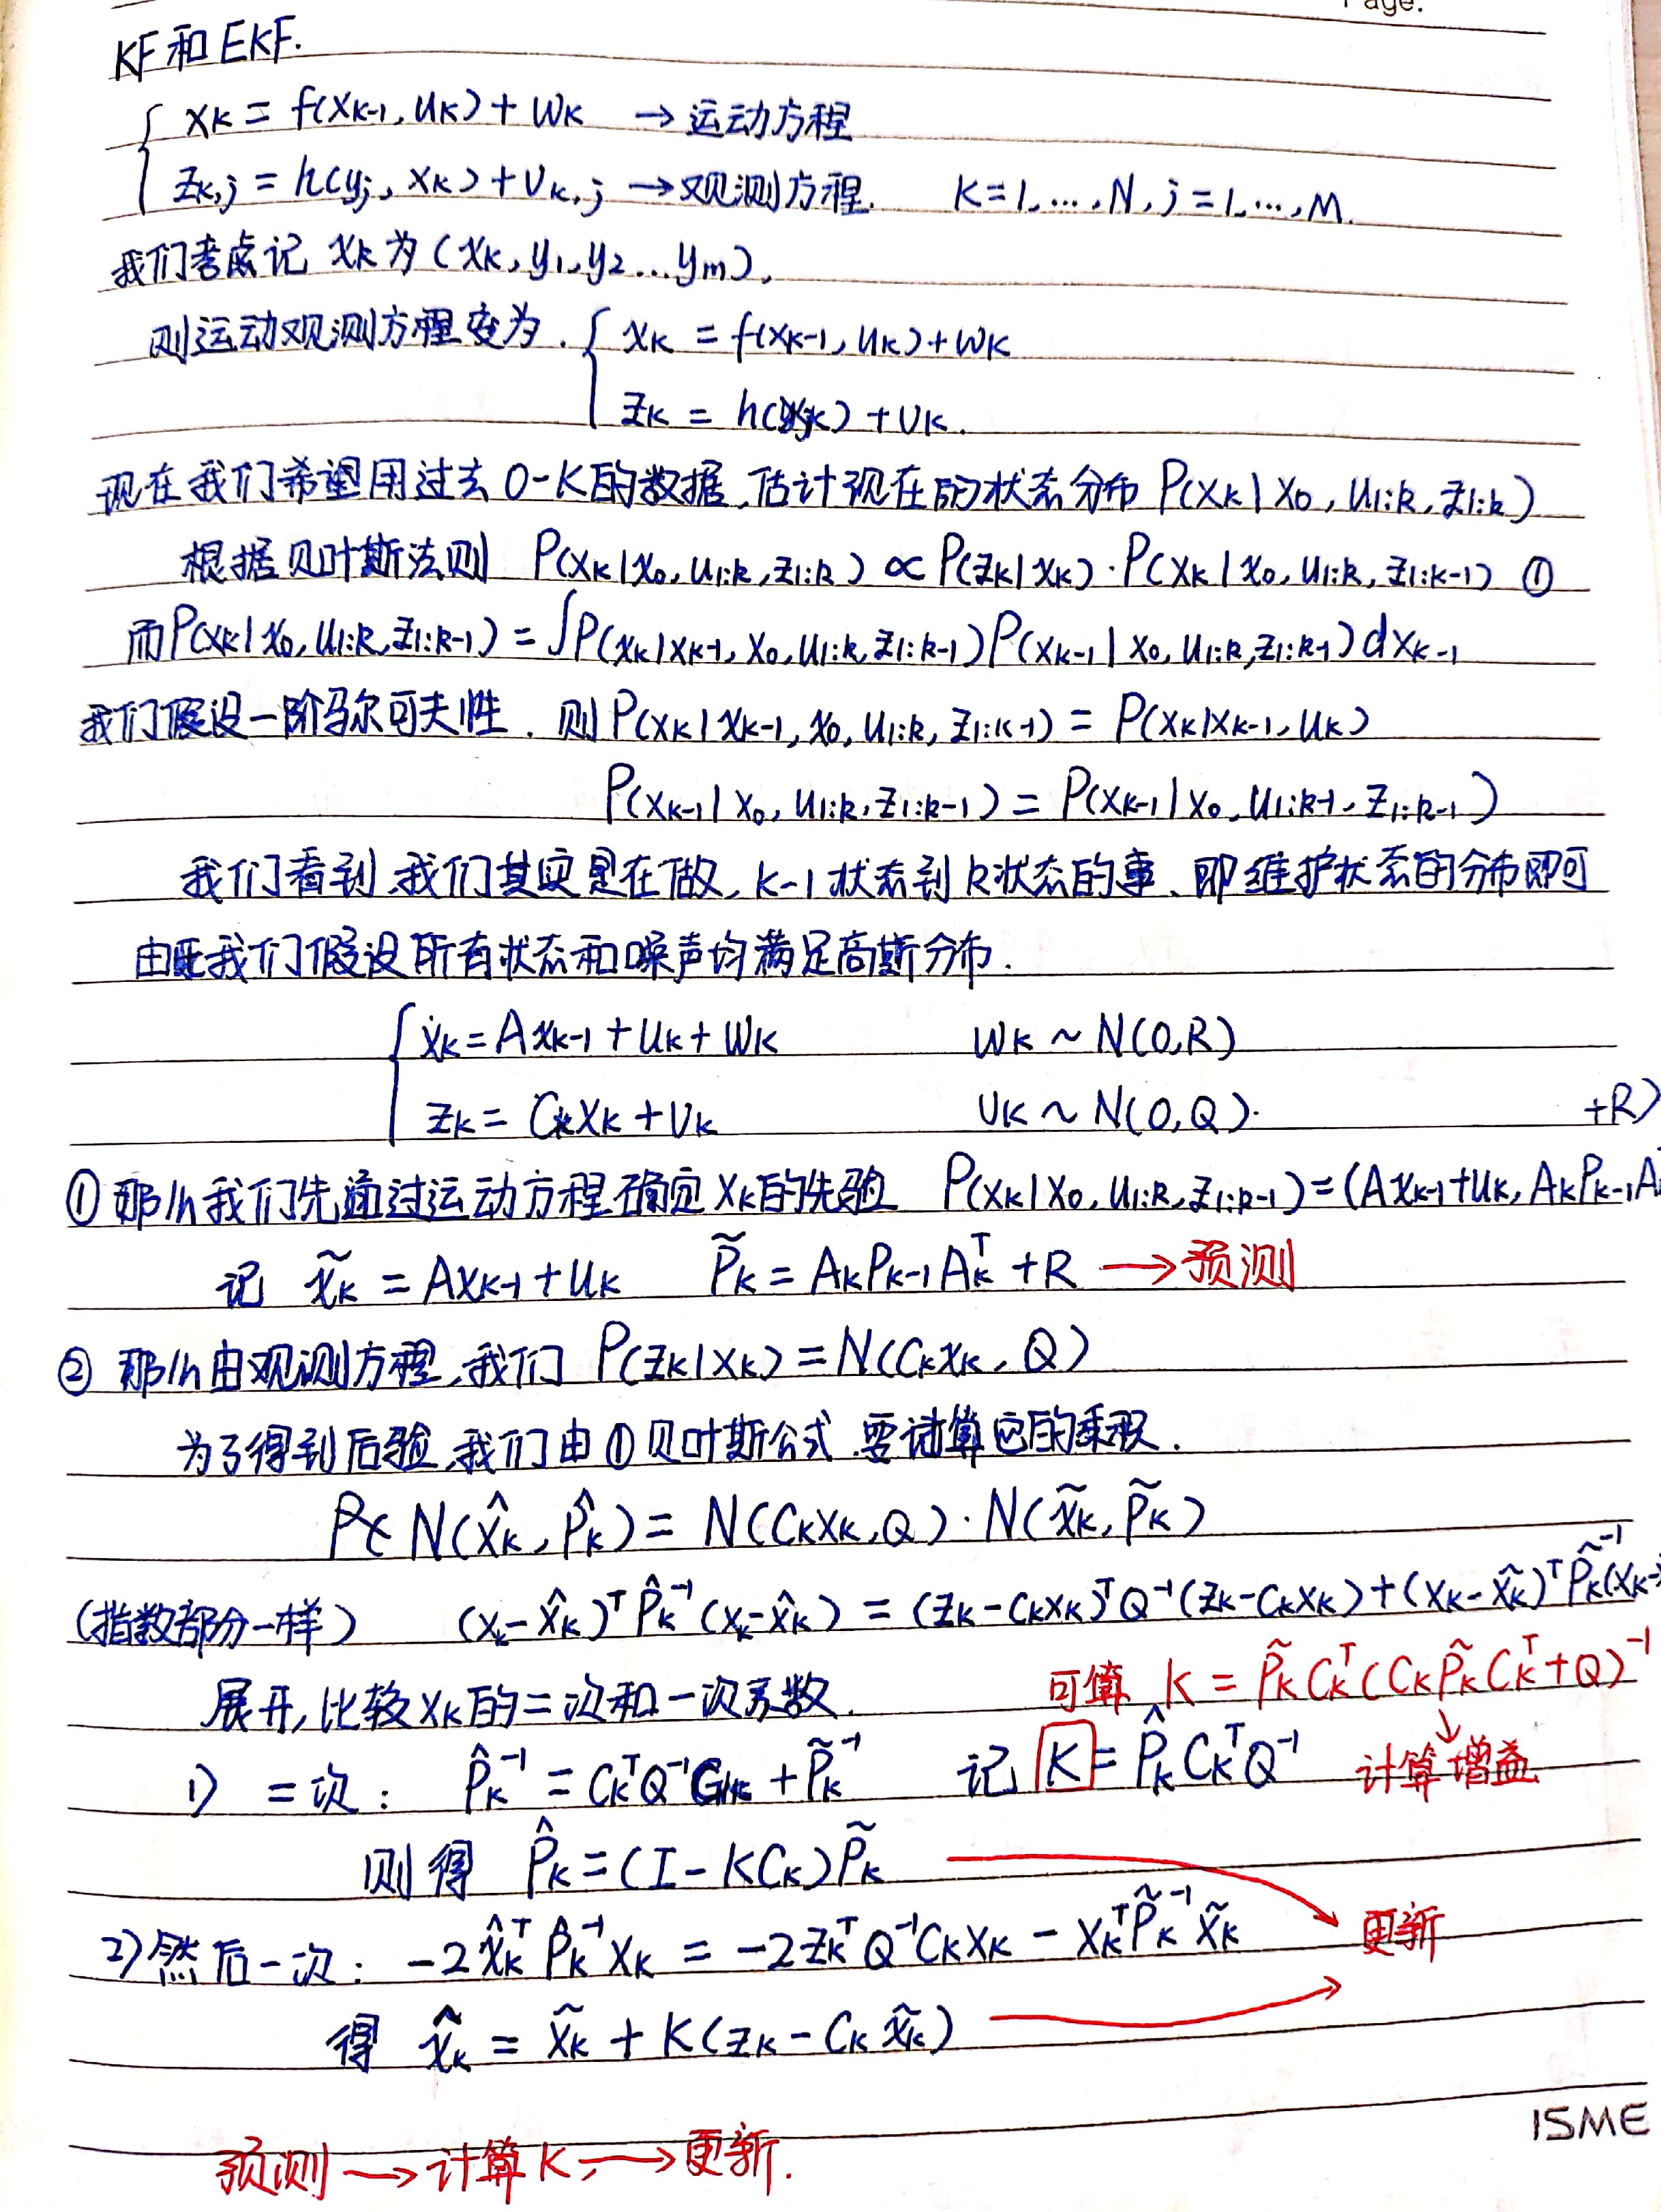 Page.
KF和EKF.
{ xk = f(xk-1, uk) + wk → 运动方程
zk,j = h(yj, xk) + vk,j → 观测方程. k=1,…,N, j=1,…,M.
我们考虑记 xk 为 (xk, y1, y2 … ym),
则运动观测方程变为. { xk = f(xk-1, uk) + wk
zk = h(xk) + vk.
现在我们希望用过去0-k的数据,估计现在的状态分布 P(xk|x0, u1:k, z1:k)
根据贝叶斯法则 P(xk|x0, u1:k, z1:k) ∝ P(zk|xk)·P(xk|x0, u1:k, z1:k-1) ①
而P(xk|x0, u1:k, z1:k-1) = ∫P(xk|xk-1, x0, u1:k, z1:k-1)P(xk-1|x0, u1:k, z1:k-1)dxk-1
我们假设一阶马尔可夫性. 则P(xk|xk-1, x0, u1:k, z1:k-1) = P(xk|xk-1, uk)
P(xk-1|x0, u1:k, z1:k-1) = P(xk-1|x0, u1:k-1, z1:k-1)
我们看到,我们其实是在做,k-1状态到k状态的事、即维护状态的分布即可
我们假设所有状态和噪声均满足高斯分布.
{ xk = Axk-1 + uk + wk wk ~ N(0,R)
zk = Ckxk + vk vk ~ N(0,Q).
+R)
①那么我们先通过运动方程确定xk的先验 P(xk|x0, u1:k, z1:k-1) = (Axk-1+uk, AkPk-1A
记 x̃k = Axk-1 + uk P̃k = AkPk-1Akᵀ + R → 预测
② 那么由观测方程,我们 P(zk|xk) = N(Ckxk, Q)
为了得到后验,我们由①贝叶斯公式.要计算它的乘积.
N(x̂k, P̂k) = N(Ckxk, Q)·N(x̃k, P̃k)
(指数部分一样) (xk-x̂k)ᵀP̂k⁻¹(xk-x̂k) = (zk-Ckxk)ᵀQ⁻¹(zk-Ckxk) + (xk-x̃k)ᵀP̃k⁻¹(xk-
展开,比较xk的二次和一次系数. 可算 K = P̃kCkᵀ(CkP̃kCkᵀ+Q)⁻¹
1) 二次: P̂k⁻¹ = CkᵀQ⁻¹Ck + P̃k⁻¹ 记 K = P̂kCkᵀQ⁻¹ ↓ 计算增益
则得 P̂k = (I-KCk)P̃k
2)然后一次: -2x̂kᵀP̂k⁻¹xk = -2zkᵀQ⁻¹Ckxk - xkᵀP̃k⁻¹x̃k → 更新
得 x̂k = x̃k + K(zk - Ckx̃k)
ISME
预测 → 计算K, → 更新.